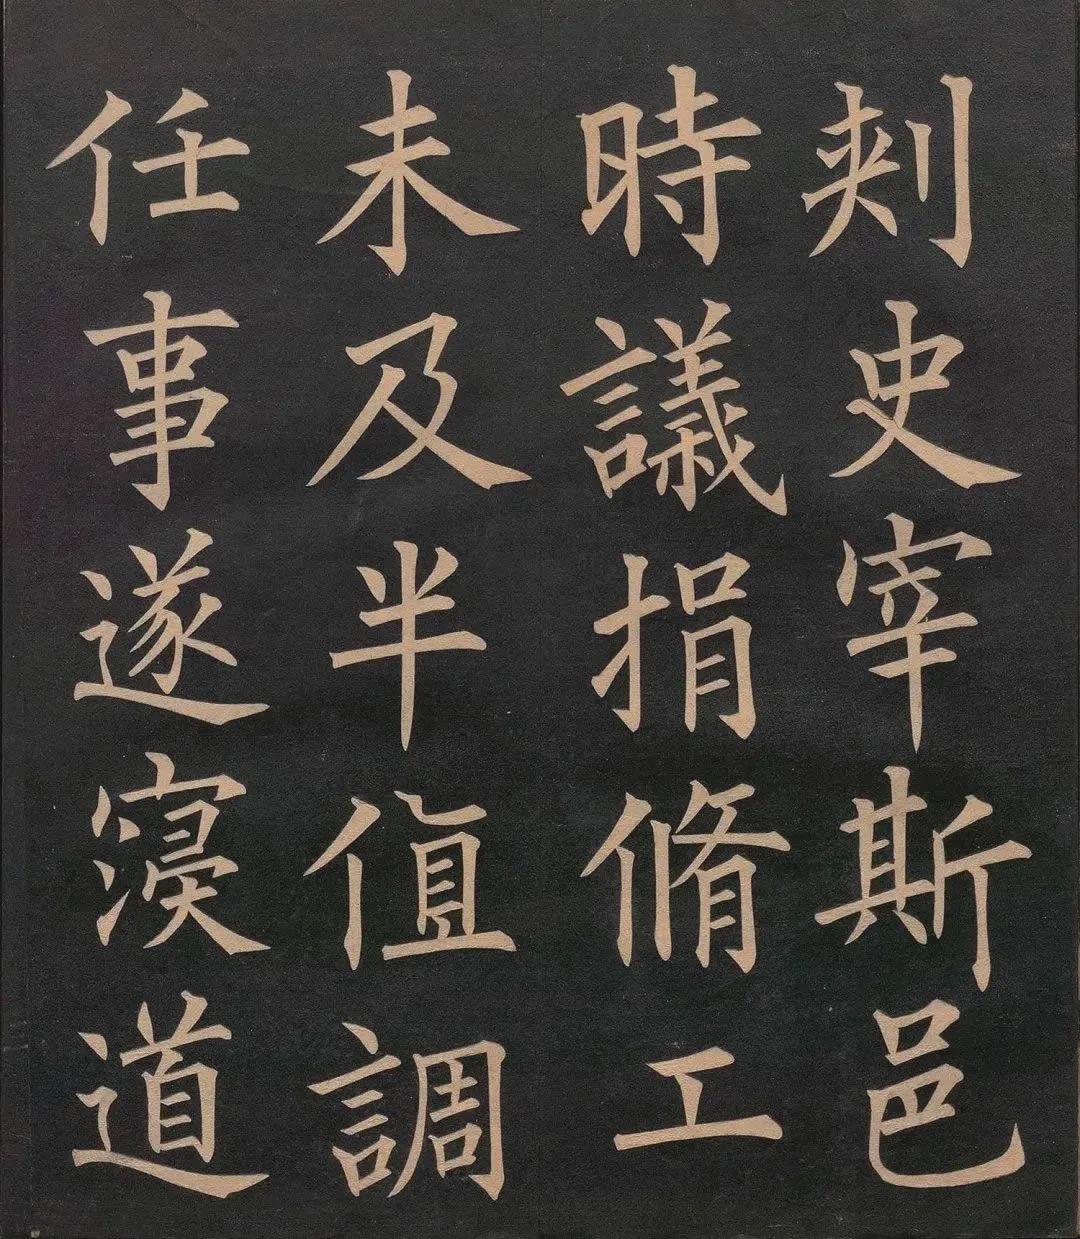 刾史宰斯邑
時議捐脩工
未及半值調
任事遂寖道